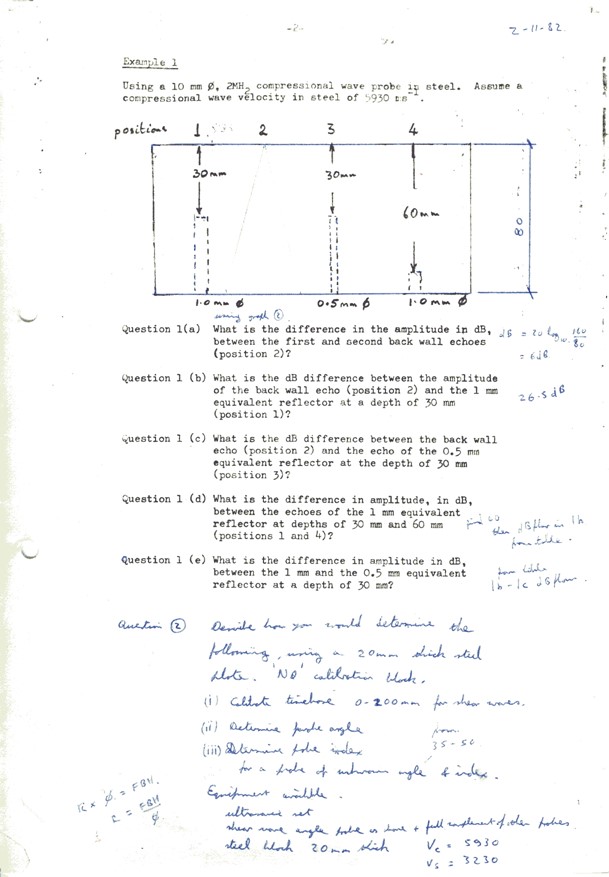 -2-
2-11-82
Example 1
Using a 10 mm Ø, 2MHz compressional wave probe in steel. Assume a
compressional wave velocity in steel of 5930 ms⁻¹.
positions 1 2 3 4
30mm 30mm
60mm
80
1.0 mm Ø 0.5mm Ø 1.0 mm Ø
using graph ①
Question 1(a) What is the difference in the amplitude in dB, dB = 20 log₁₀ 160/80
between the first and second back wall echoes
(position 2)? = 6dB
Question 1 (b) What is the dB difference between the amplitude
of the back wall echo (position 2) and the 1 mm 26.5 dB
equivalent reflector at a depth of 30 mm
(position 1)?
Question 1 (c) What is the dB difference between the back wall
echo (position 2) and the echo of the 0.5 mm
equivalent reflector at the depth of 30 mm
(position 3)?
Question 1 (d) What is the difference in amplitude, in dB,
between the echoes of the 1 mm equivalent
reflector at depths of 30 mm and 60 mm find 60
(positions 1 and 4)? then dB from 1b
from table.
Question 1 (e) What is the difference in amplitude in dB,
between the 1 mm and the 0.5 mm equivalent from table
reflector at a depth of 30 mm? 1b - 1c dB
Question ② Describe how you would determine the
following, using a 20mm thick steel
plate. 'NO' calibration block.
(i) Calibrate timebase 0-200mm for shear waves.
(ii) Determine probe angle from
(iii) Determine probe index 35-50
for a probe of unknown angle & index.
Equipment available.
ultrasonic set
shear wave angle probe as above + full complement of other probes
steel block 20mm thick Vc = 5930
Vs = 3230
R x Ø = FBH.
R = FBH/Ø